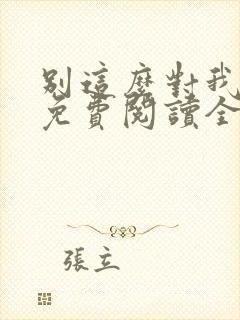 別這麼對我
免費閱讀全
張立